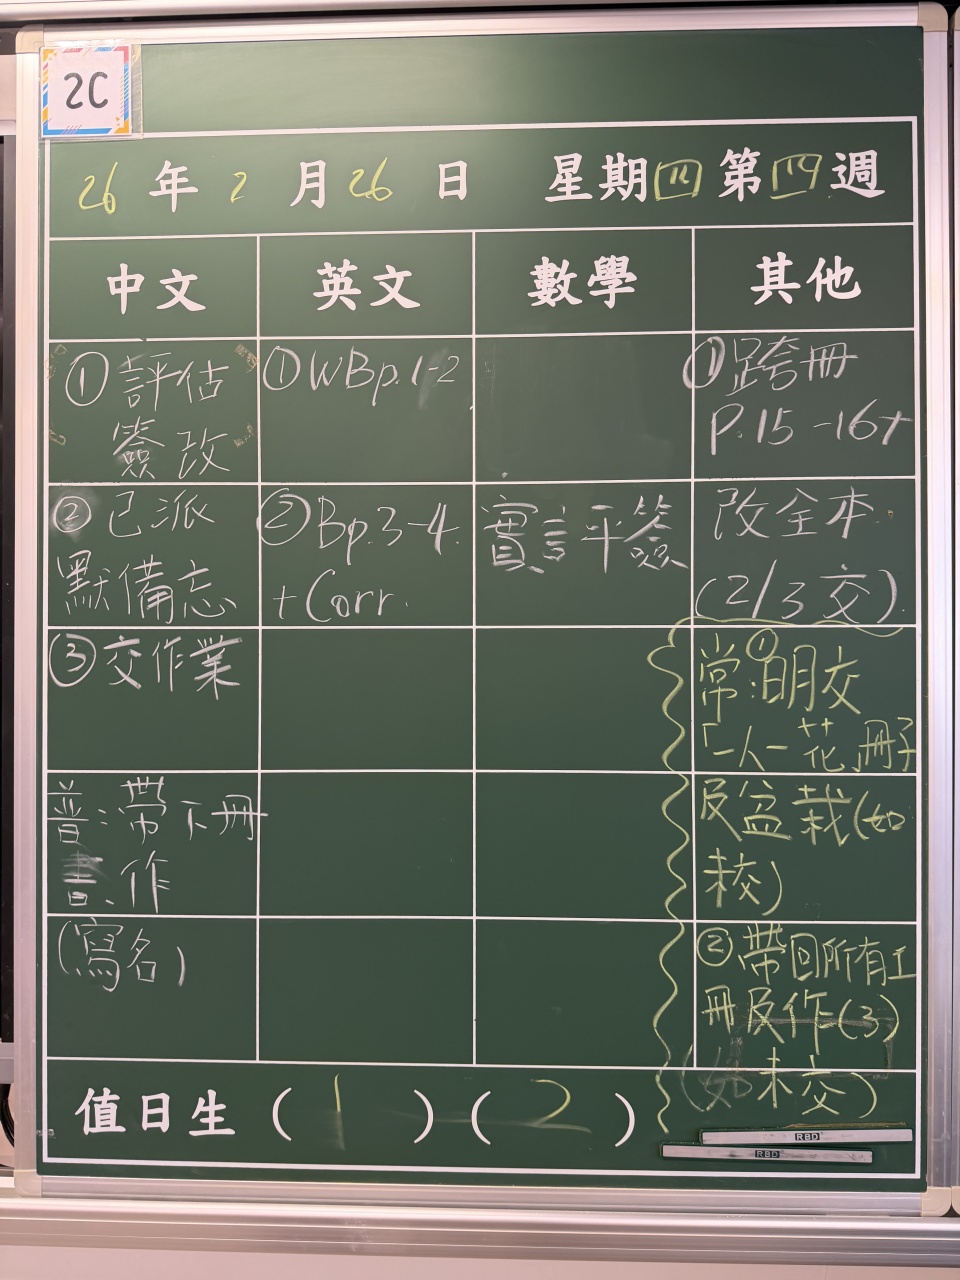 2C
26年2月26日 星期四第四週
中文 英文 數學 其他
①評估
簽改
①WBp.1-2
①跨冊
P.15-16+
②已派
默備忘
②Bp.3-4
+Corr.
實評簽
改全本
(2/3交)
③交作業
常:①明交
「一人一花」冊子
普:帶下冊
書、作
及盆栽(如
未交)
(寫名)
②帶回所有工
冊及作(3)
(如未交)
值日生(1)(2)
RBD
RBD